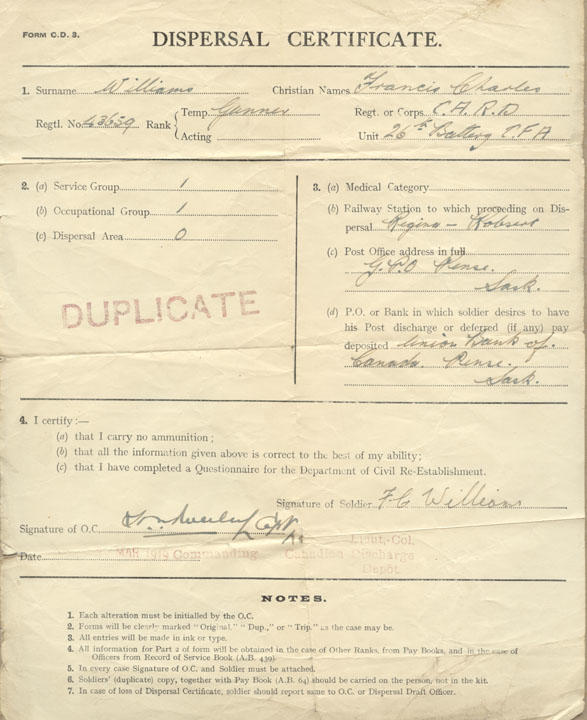 FORM C.D. 3.
DISPERSAL CERTIFICATE.
1. Surname Williams Christian Names Francis Charles
Regtl. No. 43659 Rank Temp. Gunner Regt. or Corps C.A.R.D
Acting Unit 26th Battery C.F.A
2. (a) Service Group 1
(b) Occupational Group 1
(c) Dispersal Area 0
DUPLICATE
3. (a) Medical Category
(b) Railway Station to which proceeding on Dis-
persal Regina -
(c) Post Office address in full
G.P.O Pense.
Sask.
(d) P.O. or Bank in which soldier desires to have
his Post discharge or deferred (if any) pay
deposited Union Bank of
Canada. Pense.
Sask.
4. I certify :—
(a) that I carry no ammunition ;
(b) that all the information given above is correct to the best of my ability ;
(c) that I have completed a Questionnaire for the Department of Civil Re-Establishment.
Signature of Soldier F.C. Williams
Signature of O.C. Capt
Date MAR 1919 Commanding Canadian Discharge
Lieut.-Col.
Depôt.
NOTES.
1. Each alteration must be initialled by the O.C.
2. Forms will be clearly marked "Original," "Dup.," or "Trip." as the case may be.
3. All entries will be made in ink or type.
4. All information for Part 2 of form will be obtained in the case of Other Ranks, from Pay Books, and in the case of
Officers from Record of Service Book (A.B. 439).
5. In every case Signature of O.C. and Soldier must be attached.
6. Soldiers' (duplicate) copy, together with Pay Book (A.B. 64) should be carried on the person, not in the kit.
7. In case of loss of Dispersal Certificate, soldier should report same to O.C. or Dispersal Draft Officer.